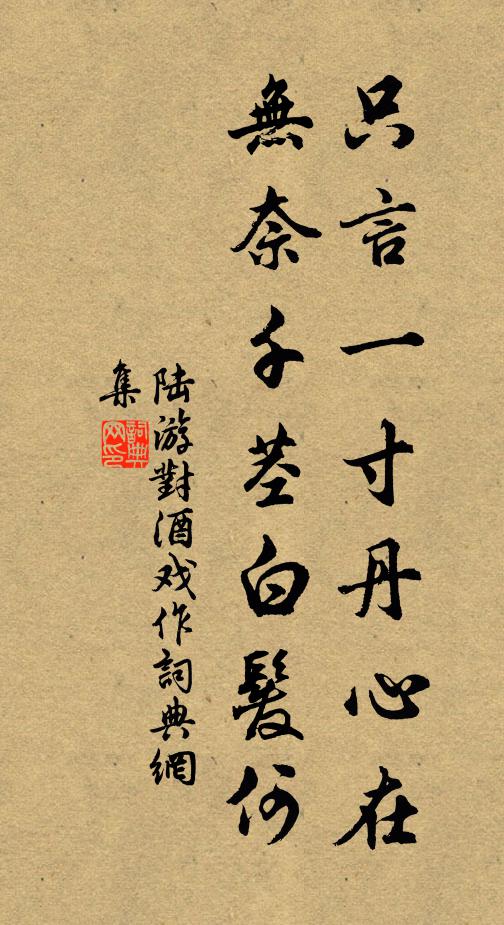 只言一寸丹心在
無奈千茎白髮何
陆游對酒戏作詞典網
集
詞典网印